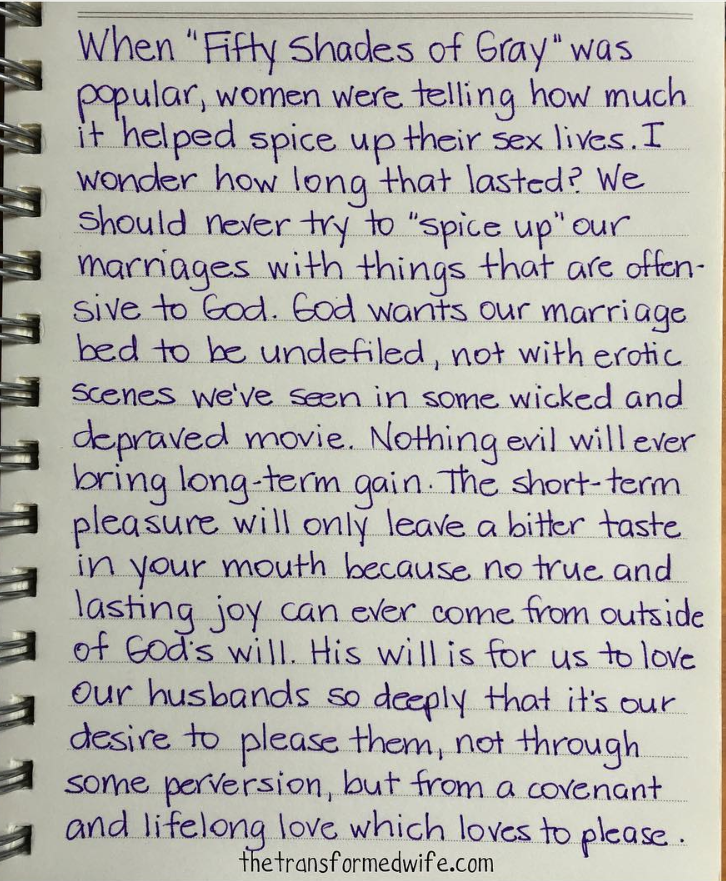 When "Fifty Shades of Gray" was
popular, women were telling how much
it helped spice up their sex lives. I
wonder how long that lasted? We
should never try to "spice up" our
marriages with things that are offen-
sive to God. God wants our marriage
bed to be undefiled, not with erotic
scenes we've seen in some wicked and
depraved movie. Nothing evil will ever
bring long-term gain. The short-term
pleasure will only leave a bitter taste
in your mouth because no true and
lasting joy can ever come from outside
of God's will. His will is for us to love
our husbands so deeply that it's our
desire to please them, not through
some perversion, but from a covenant
and lifelong love which loves to please.
thetransformedwife.com